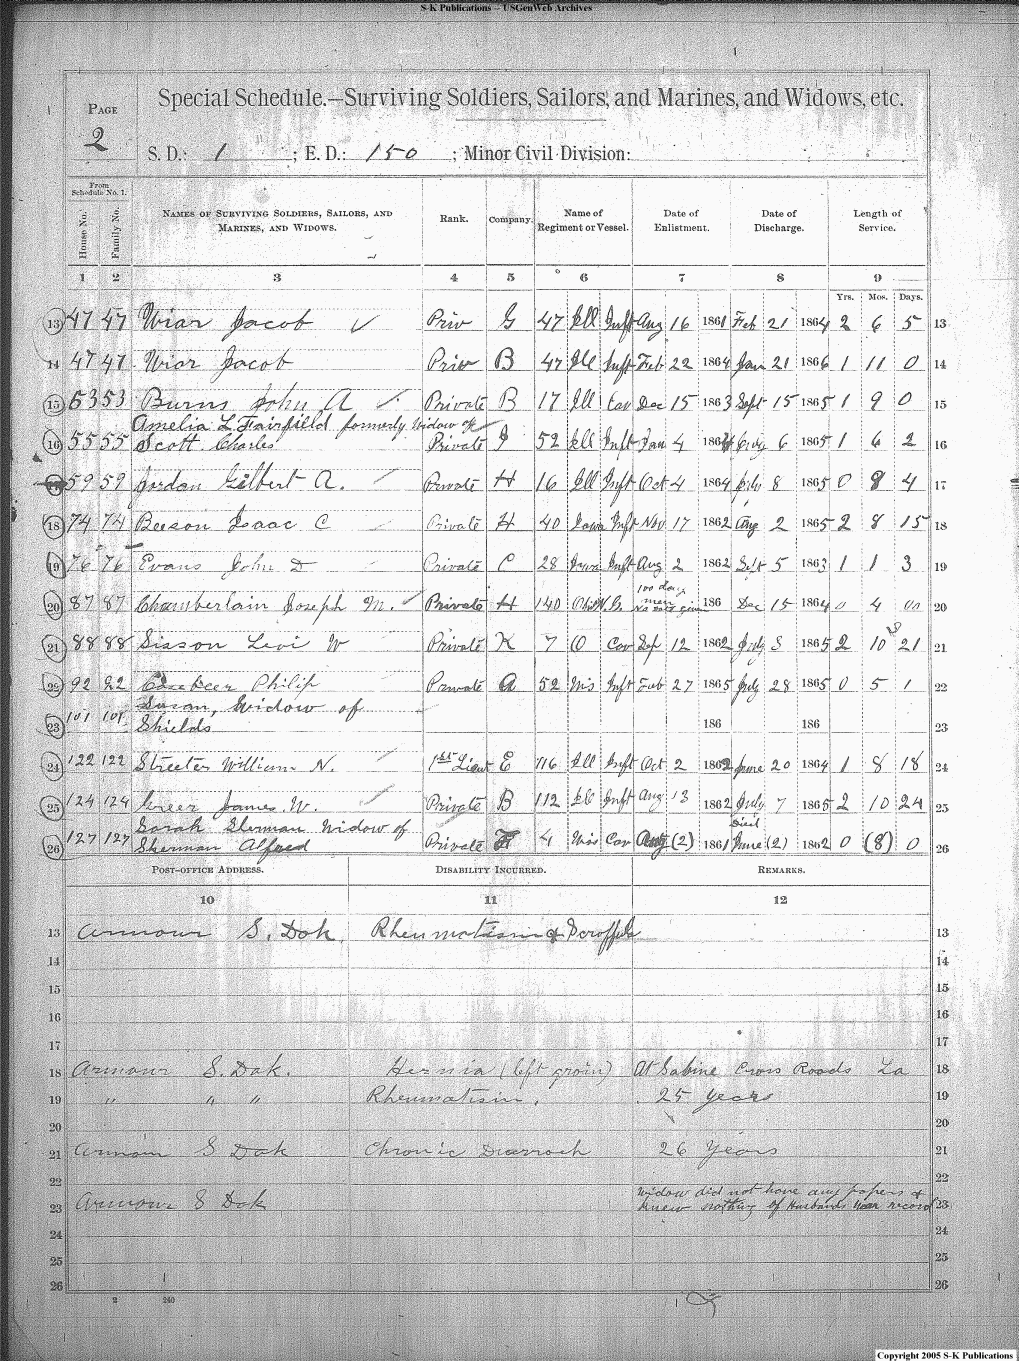 S-K Publications -- USGenWeb Archives
PAGE 2
Special Schedule.—Surviving Soldiers, Sailors, and Marines, and Widows, etc.
S. D.: 1 ; E. D.: 150 ; Minor Civil Division:
From Schedule No. 1.
House No. Family No. NAMES OF SURVIVING SOLDIERS, SAILORS, AND MARINES, AND WIDOWS. Rank. Company. Name of Regiment or Vessel. Date of Enlistment. Date of Discharge. Length of Service.
1 2 3 4 5 6 7 8 9
Yrs. Mos. Days.
13 47 47 Wiar Jacob Priv G 47 Ill Inft Aug 16 1861 Feb 21 1864 2 6 5 13
14 47 47 Wiar Jacob Priv B 47 Ill Inft Feb 22 1864 Jan 21 1866 1 11 0 14
15 53 53 Burns John A Private B 17 Ill Cav Dec 15 1863 Sept 15 1865 1 9 0 15
Amelia L Fairfield formerly Widow of
16 55 55 Scott Charles Private I 52 Ill Inft Jan 4 186 6 1865 1 6 2 16
59 59 Jordan Gilbert A. Private H 16 Ill Inft Oct 4 1864 July 8 1865 0 8 4 17
18 74 74 Beeson Isaac C Private H 40 Iowa Inft Nov 17 1862 Aug 2 1865 2 8 15 18
19 76 76 Evans John D Private C 28 Iowa Inft Aug 2 1862 Sept 5 1863 1 1 3 19
100 days men
20 87 87 Chamberlain Joseph M. Private H 140 Ohio N.G. No date given 186 Dec 15 1864 0 4 00 20
21 88 88 Sisson Levi W Private K 7 O Cav Sep 12 1862 July 3 1865 2 10 21 21
22 92 92 Philip Private A 52 Wis Inft Feb 27 1865 July 28 1865 0 5 1 22
Susan, Widow of
23 101 101 Shields 186 186 23
24 122 122 Streeter William N. 1st Lieut E 116 Ill Inft Oct 2 1862 June 20 1864 1 8 18 24
25 124 124 Greer James W. Private B 112 Ill Inft Aug 13 1862 July 7 1865 2 10 24 25
Sarah Sherman Widow of Died
26 127 127 Sherman Alfred Private F 4 Wis Cav (2) 1861 June (2) 1862 0 (8) 0 26
POST-OFFICE ADDRESS. DISABILITY INCURRED. REMARKS.
10 11 12
13 Armour S. Dak. Rheumatism & 13
14 14
15 15
16 16
17 17
18 Armour S. Dak. Hernia (left groin) At Sabine Cross Roads La 18
19 " " " Rheumatism. 25 years 19
20 20
21 Armour S Dak Chronic Diarroeh 26 Years 21
22 Widow did not have any papers & 22
23 Armour S Dak knew nothing of Husbands War record 23
24 24
25 25
26 26
2 240
Copyright 2005 S-K Publications